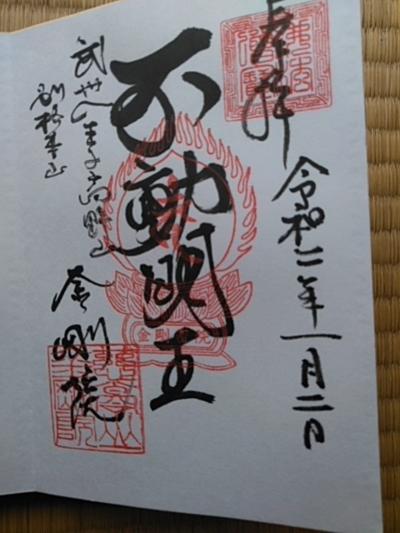 奉拝
令和二年一月二日
不動明王
武州八王子高野山
別格本山
金剛院